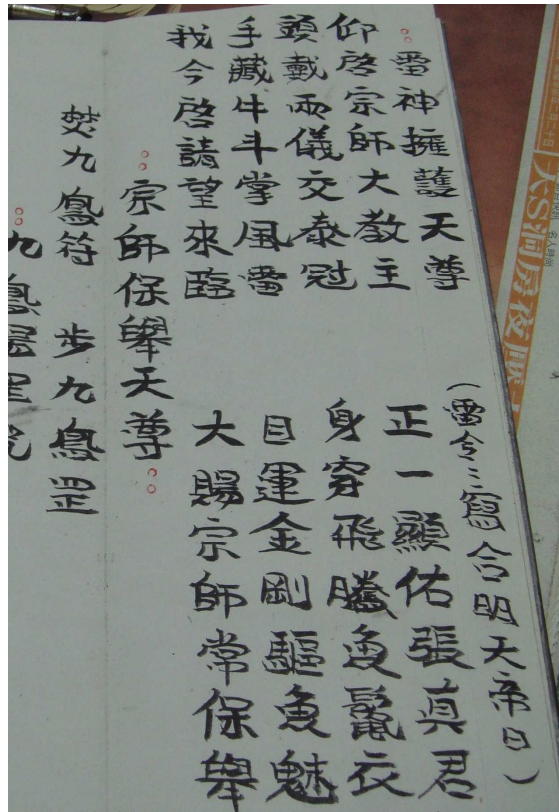 雷神擁護天尊
(雷令三寫合明天帝日)
仰啓宗師大教主 正一顯佑張真君
頭戴兩儀交泰冠 身穿飛騰魚鬣衣
手藏牛斗掌風雷 目運金剛驅魚魅
我今啓請望來臨 大賜宗師常保舉
宗師保舉天尊
焚九鳳符 步九鳳罡
九鳳
大S洞房夜